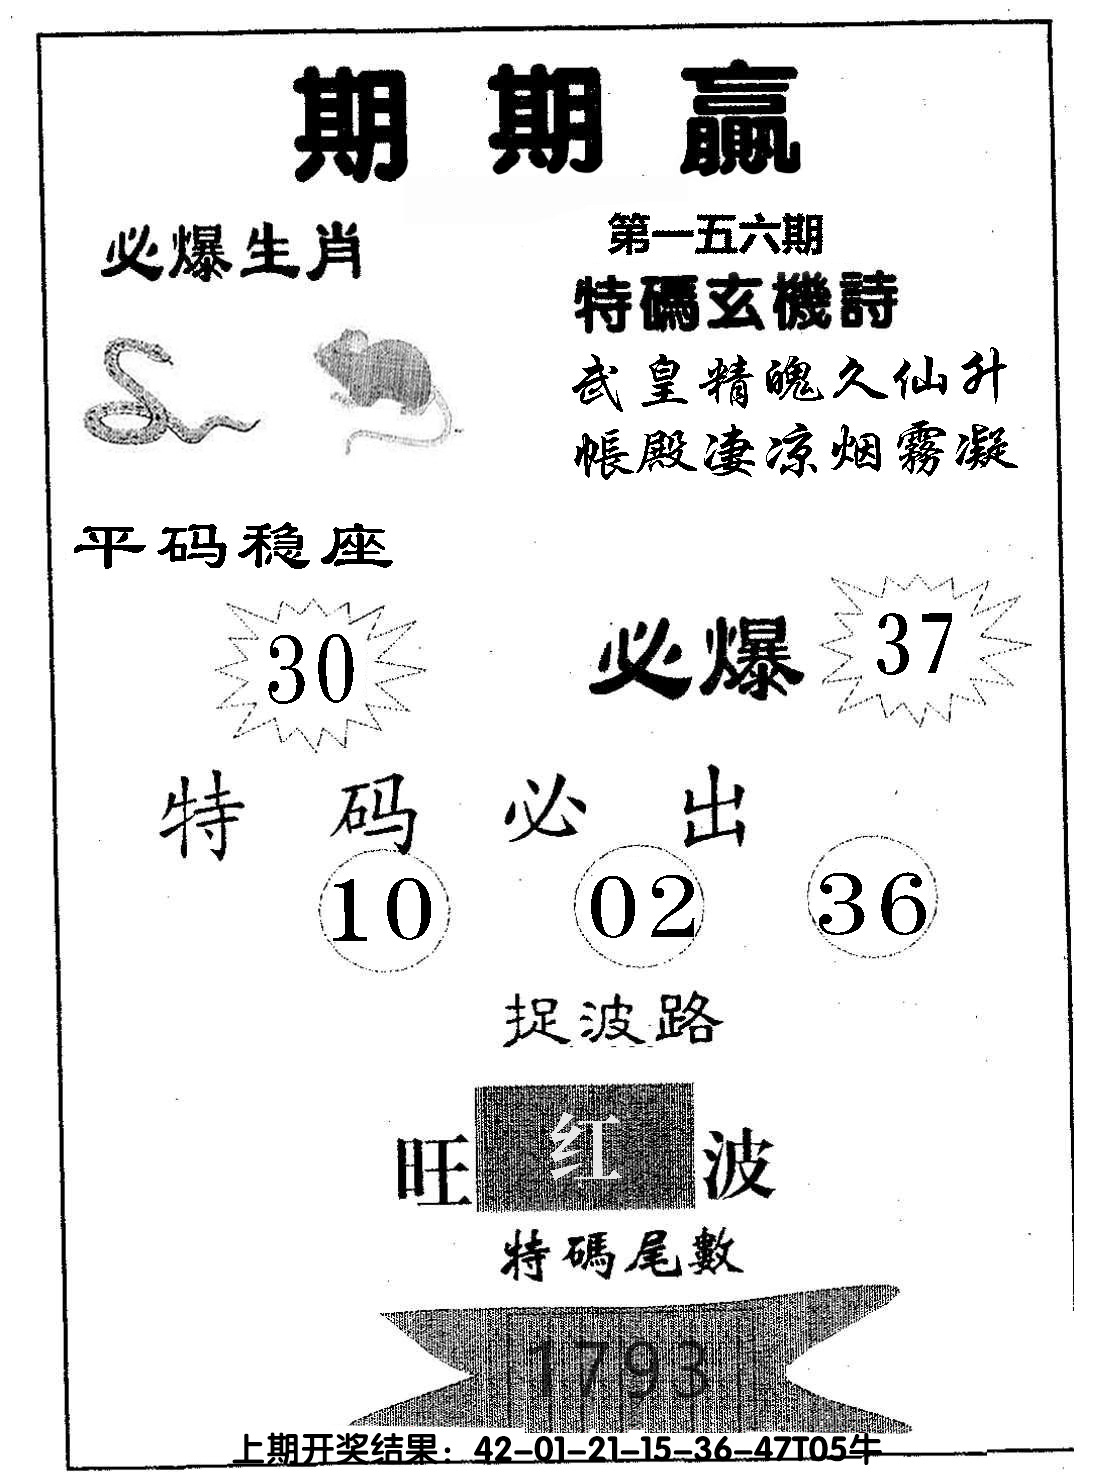 期期贏
必爆生肖
第一五六期
特碼玄機詩
武皇精魄久仙升
帳殿凄凉烟霧凝
平码稳座
30
必爆 37
特码必出
10 02 36
捉波路
旺红波
特碼尾數
1793
上期开奖结果：42-01-21-15-36-47T05牛